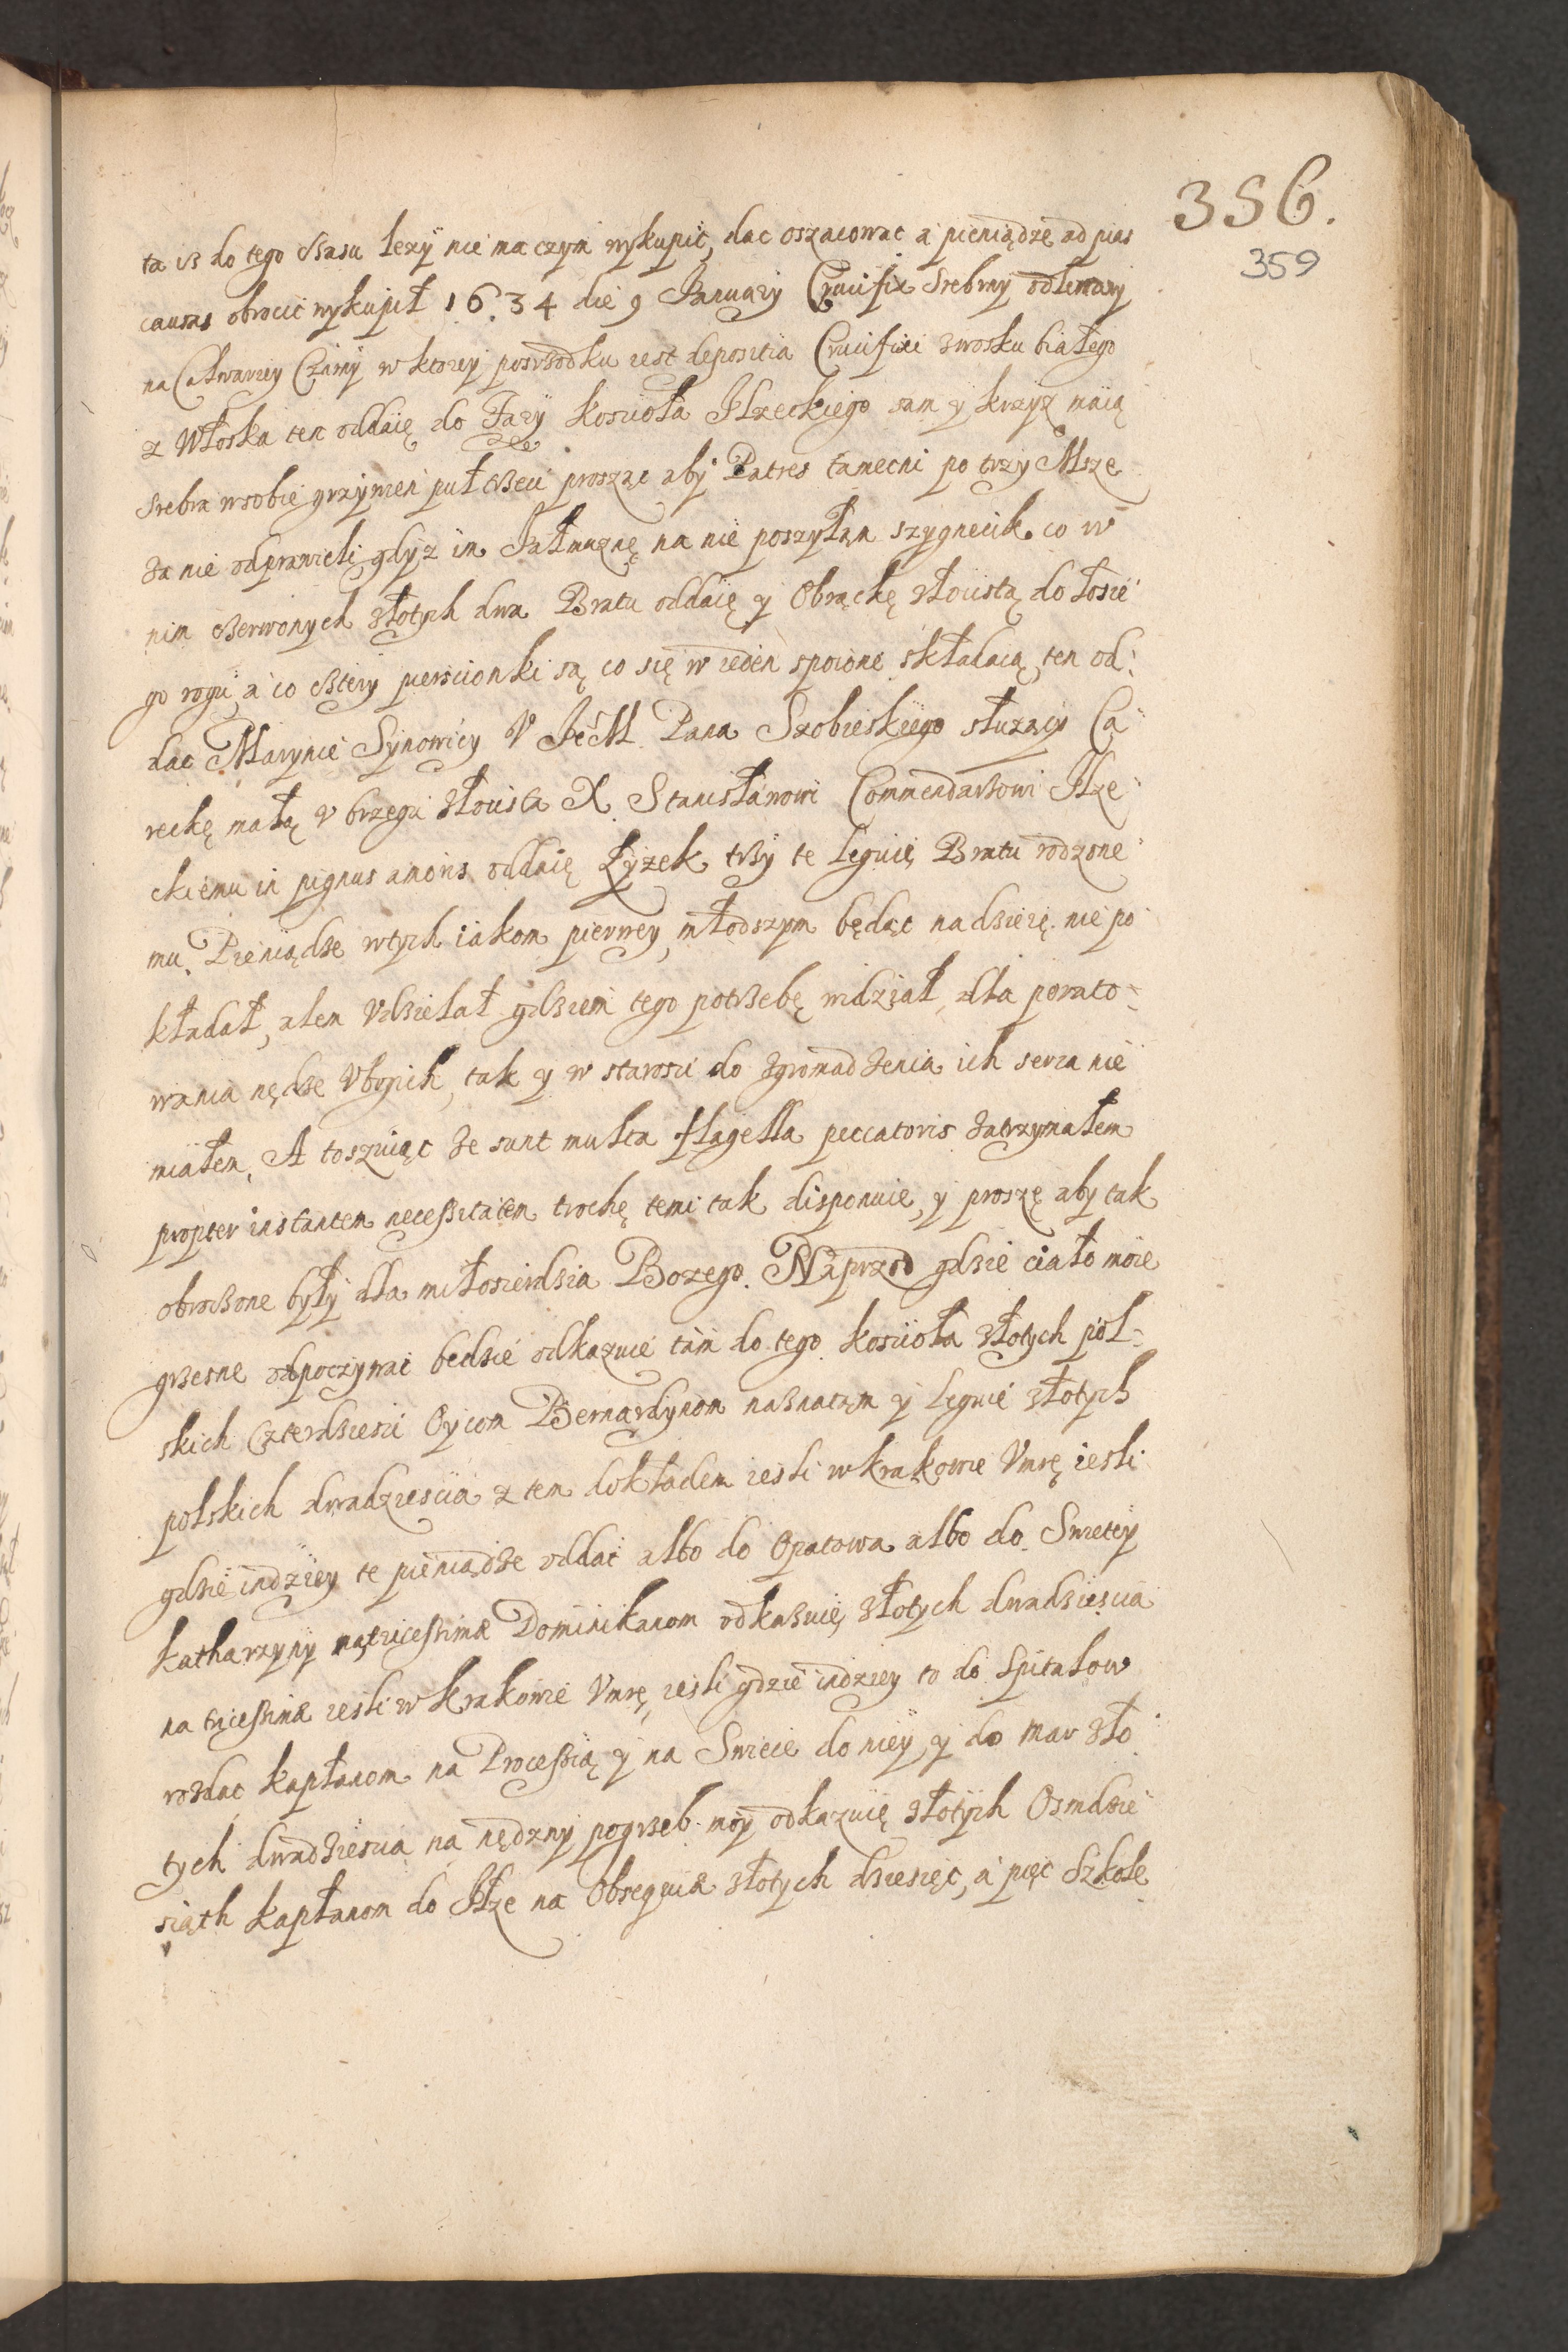 356.
359
ta iß do tego cßasu lezy nie ma czym wykupic, dac oszacowac a pieniądze ad pias
causas obrocic wykupił 1634 die 9 Januarÿ Crucifix Srebrny odlewany
na Calwariey Czarny w ktorey posrßodku iest depositia Crucifixi z wosku białego
z Włoska ten oddaię do Fary koscioła Ilzeckiego sam y krzyz maią
srebra w sobie grzywien puł cßwci prosząc aby Patres tameczni po trzy Msze
za nie odprawieli gdyz in Jałmuznę na nie poszyłam szygnecik co w
nim cßerwonych złotych dwa Bratu oddaię y Obrąckę złoustą do łosie
go rogu, a co cßtery piersciońki są co się w ieden spoione składaią, ten od:
dac Marynie Synowicy V JeM Pana Szobieskiego słuzący Ca
reckę małą v brzegu złousta X. Stanisławowi Commendarzowi Ilze
ckiemu in pignus amoris oddaię Łyzek trßy te leguię Bratu rodzone
mu. Pieniądze w tych iakom pierwey młodszym będąc nadzieię nie po
kładał, alem vdzielał gdziem tego potrßebę widział, dla porato=
wania nędze Vbogich, tak y w starosci do zgromadzenia ich serca nie
miałem, A to sziąc ze sunt multa flagella peccatoris zatrzymałem
propter instantem necessitatem trochę temi tak disponuie, y proszę aby tak
obrocßone były dla miłosierdzia Bozego. Naprzod gdzie ciało moie
grzesne odpoczywac bedzie odkazuie tam do tego kosciola złotych pol=
skich Czterdziesci Oycom Bernardynom naznaczam y leguie złotych
polskich dwadziescia z tem dokładem iesli w Krakowie Vmrę iesli
gdzie indziey te pieniądze oddac albo do Opatowa albo do Swietey
Katharzyny na tricessimæ Dominikanom odkazuię złotych dwadziescia
na tricessimæ iesli w Krakowie Vmrę, iesli gdzie indziey to do Spitalow
rozdac kapłanom na Processią y na Swiece do niey y do mar zło
tych dwadziescia na nędzny pogrzeb moy odkazuię złotych Osmdzie
siąth kapłanom do Ilze na Obsequiæ złotych dziesięc, a pięc Szkole